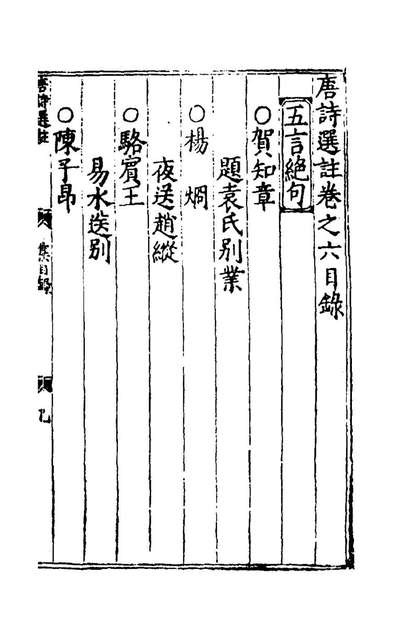 唐詩選註卷之六目錄
五言絕句
○賀知章
題袁氏別業
○楊炯
夜送趙縱
○駱賓王
易水送別
○陳子昂
唐詩選註